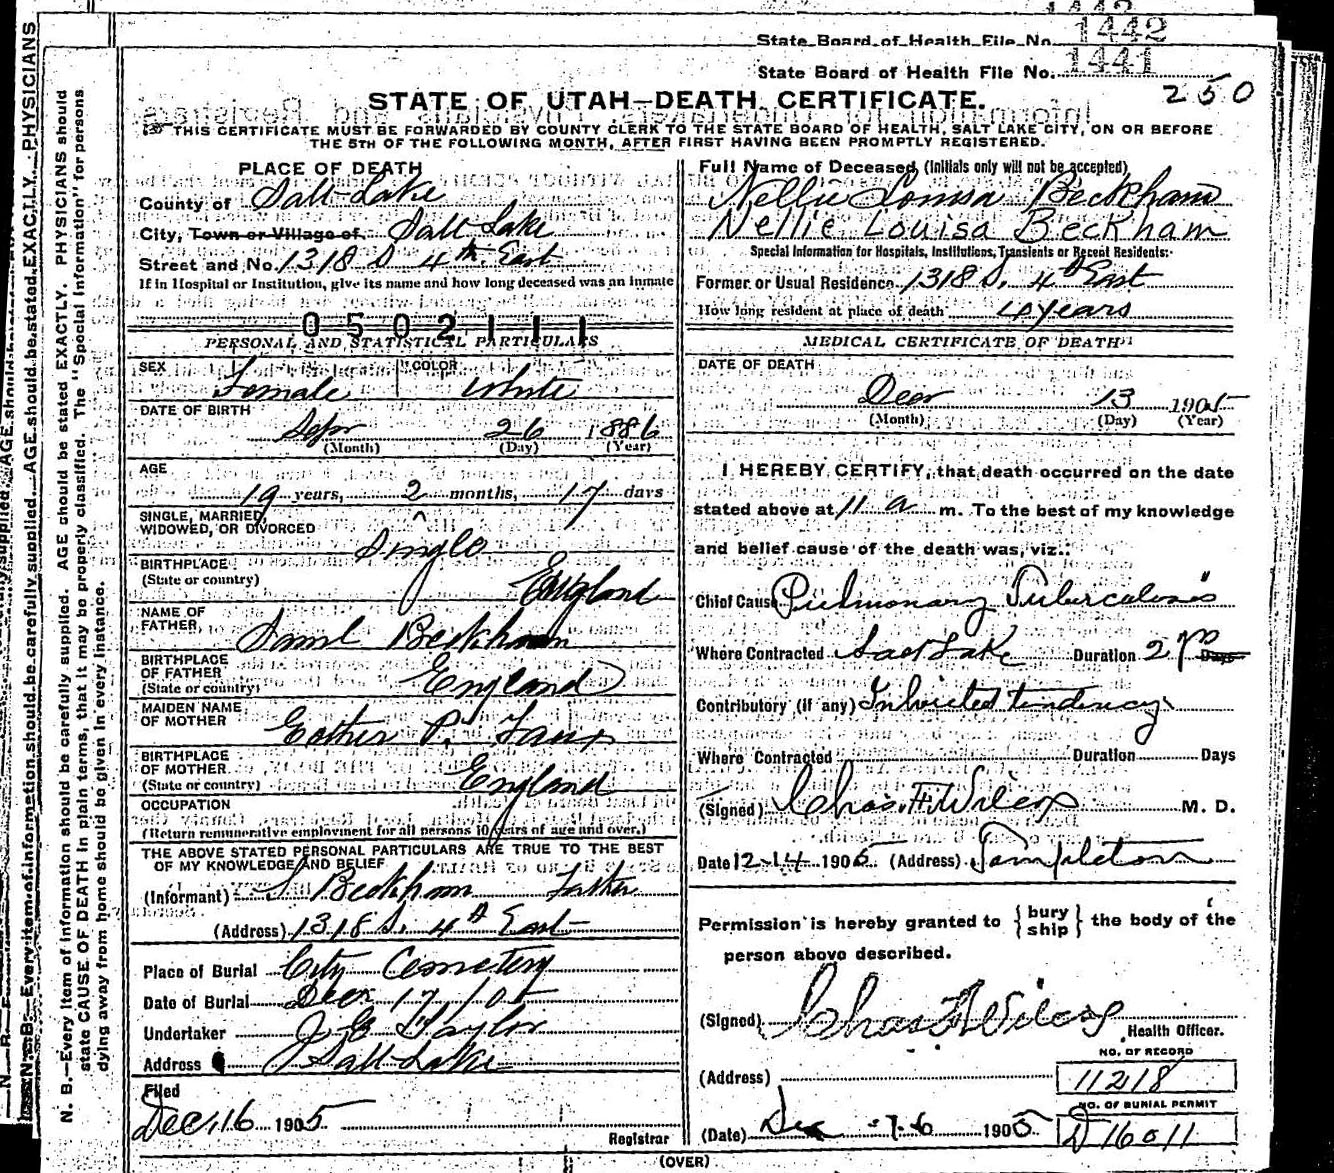 1442
1442
State Board of Health File No.
1441
State Board of Health File No.
250
STATE OF UTAH—DEATH CERTIFICATE.
THIS CERTIFICATE MUST BE FORWARDED BY COUNTY CLERK TO THE STATE BOARD OF HEALTH, SALT LAKE CITY, ON OR BEFORE
THE 5TH OF THE FOLLOWING MONTH, AFTER FIRST HAVING BEEN PROMPTLY REGISTERED.
PLACE OF DEATH
County of Salt Lake
City, Town or Village of Salt Lake
Street and No. 1318 S 4th East
If in Hospital or Institution, give its name and how long deceased was an inmate
0502111
PERSONAL AND STATISTICAL PARTICULARS
SEX Female COLOR White
DATE OF BIRTH
Sepr 26 1886
(Month) (Day) (Year)
AGE
19 years, 2 months, 17 days
SINGLE, MARRIED,
WIDOWED, OR DIVORCED
Single
BIRTHPLACE
(State or country)
England
NAME OF
FATHER
Saml Beckham
BIRTHPLACE
OF FATHER
(State or country)
England
MAIDEN NAME
OF MOTHER
Esther P. Faux
BIRTHPLACE
OF MOTHER
(State or country)
England
OCCUPATION
(Return remunerative employment for all persons 10 years of age and over.)
THE ABOVE STATED PERSONAL PARTICULARS ARE TRUE TO THE BEST
OF MY KNOWLEDGE AND BELIEF
(Informant) S Beckham Father
(Address) 1318 S. 4th East
Place of Burial City Cemetery
Date of Burial Decr 17/05
Undertaker J E Taylor
Address Salt Lake
Filed
Dec. 16 1905
Registrar
Full Name of Deceased, (Initials only will not be accepted)
Nellie Louisa Beckham
Nellie Louisa Beckham
Special Information for Hospitals, Institutions, Transients or Recent Residents:
Former or Usual Residence 1318 S. 4th East
How long resident at place of death 4 years
MEDICAL CERTIFICATE OF DEATH
DATE OF DEATH
Decr 13 1905
(Month) (Day) (Year)
I HEREBY CERTIFY, that death occurred on the date
stated above at 11 a m. To the best of my knowledge
and belief cause of the death was, viz.:
Chief Cause Pulmonary Tuberculosis
Where Contracted Salt Lake Duration 2 yrs Days
Contributory (if any) Inherited tendency
Where Contracted Duration Days
(Signed) Chas. F. Wilcox M. D.
Date 12-14 1905 (Address) Templeton
Permission is hereby granted to { bury ship } the body of the
person above described.
(Signed) Chas F Wilcox Health Officer.
NO. OF RECORD
(Address) 11218
NO. OF BURIAL PERMIT
(Date) Dec 1905 D 16011
(OVER)
N. B.—Every item of information should be carefully supplied. AGE should be stated EXACTLY. PHYSICIANS should
state CAUSE OF DEATH in plain terms, that it may be properly classified. The "Special Information" for persons
dying away from home should be given in every instance.
N. B.—Every item of information should be carefully supplied. AGE should be stated EXACTLY. PHYSICIANS